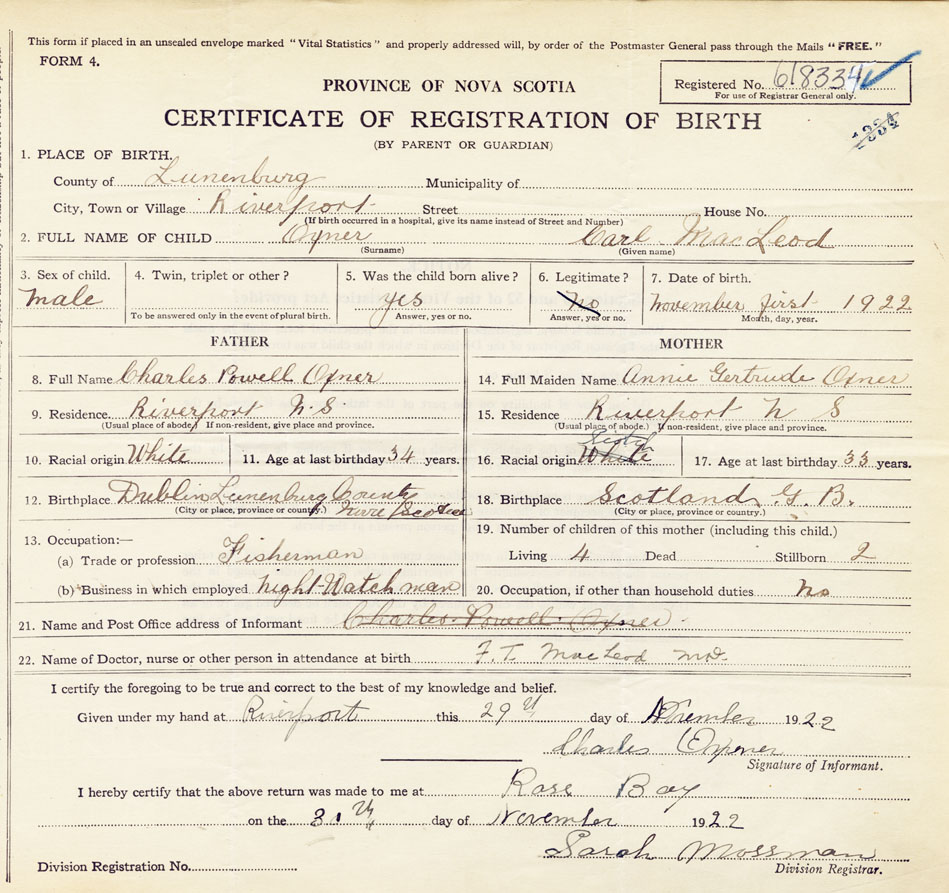 This form if placed in an unsealed envelope marked "Vital Statistics" and properly addressed will, by order of the Postmaster General pass through the Mails "FREE."
FORM 4.
Registered No. 618334
For use of Registrar General only.
PROVINCE OF NOVA SCOTIA
CERTIFICATE OF REGISTRATION OF BIRTH
1334
(BY PARENT OR GUARDIAN)
1. PLACE OF BIRTH.
County of Lunenburg Municipality of
City, Town or Village Riverport Street House No.
(If birth occurred in a hospital, give its name instead of Street and Number)
2. FULL NAME OF CHILD Oxner Carl MacLeod
(Surname) (Given name)
3. Sex of child. 4. Twin, triplet or other? 5. Was the child born alive? 6. Legitimate? 7. Date of birth.
male yes no November first 1922
To be answered only in the event of plural birth. Answer, yes or no. Answer, yes or no. Month, day, year.
FATHER MOTHER
8. Full Name Charles Powell Oxner 14. Full Maiden Name Annie Gertrude Oxner
9. Residence. Riverport N. S 15. Residence Riverport N S
(Usual place of abode.) If non-resident, give place and province. (Usual place of abode.) If non-resident, give place and province.
10. Racial origin White 11. Age at last birthday 34 years. 16. Racial origin White 17. Age at last birthday 33 years.
12. Birthplace Dublin Lunenburg County 18. Birthplace Scotland, G. B.
(City or place, province or country.) Nova Scotia (City or place, province or country.)
13. Occupation:— 19. Number of children of this mother (including this child.)
(a) Trade or profession Fisherman Living 4 Dead Stillborn 2
(b) Business in which employed night-Watch man 20. Occupation, if other than household duties No
21. Name and Post Office address of Informant Charles Powell Oxner
22. Name of Doctor, nurse or other person in attendance at birth F. T. MacLeod MD.
I certify the foregoing to be true and correct to the best of my knowledge and belief.
Given under my hand at Riverport this 29th day of November 1922
Charles Oxner
Signature of Informant.
I hereby certify that the above return was made to me at Rose Bay
on the 30th day of November 1922
Sarah Mossman
Division Registration No. Division Registrar.